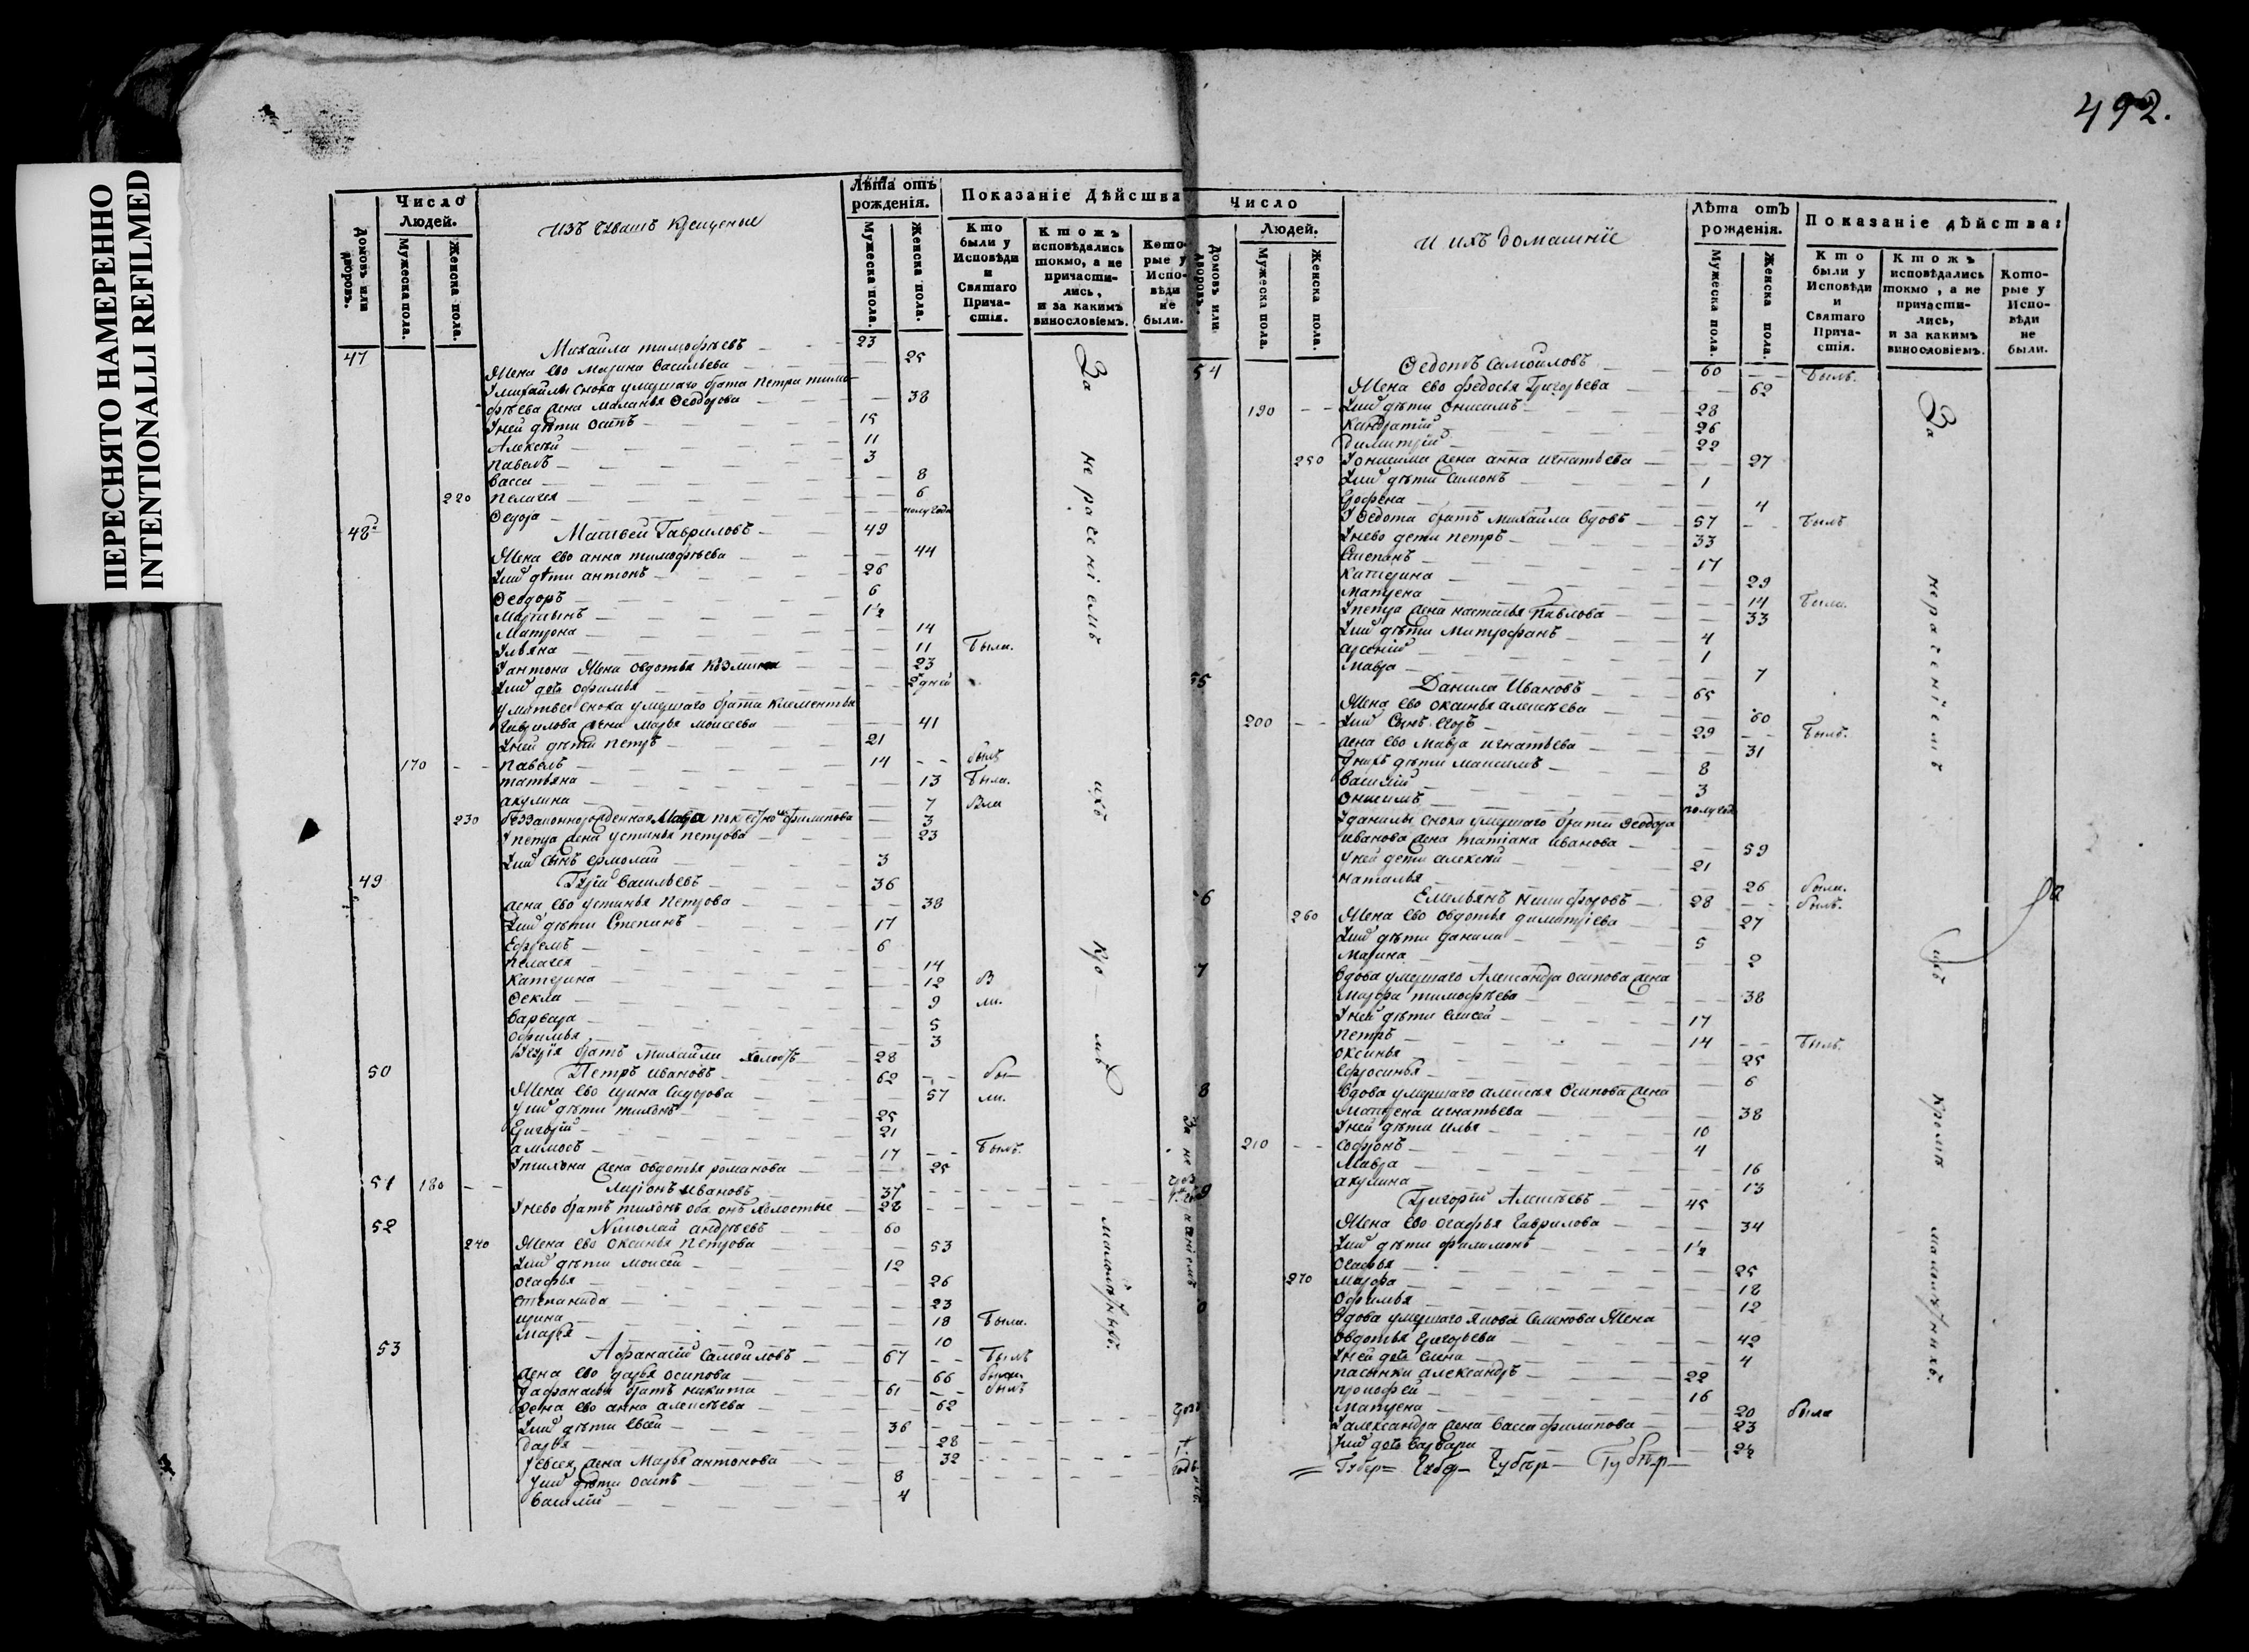 492.
ПЕРЕСНЯТО НАМЕРЕННО
INTENTIONALLI REFILMED
Число Людей.
Домовъ или дворовъ.
Мужеска пола.
Женска пола.
изъ Чувашъ крещеные
Лѣта отъ рожденія.
Мужеска пола.
Женска пола.
Показаніе Дѣйства
Кто были у Исповѣди и Святаго Причастія.
Ктожъ исповѣдались токмо, а не причастились, и за какимъ винословіемъ.
Которые у Исповѣди не были.
47 Михайла тимофѣевъ 23
Жена ево Марина Васильева 25
У михайлы сноха умершаго брата Петра тимо-
фѣева жена Маланья Ѳеодорова 38
У ней дѣти Осипъ 15
Алексѣй 11
Павелъ 3
Васса 8
220 Пелагея 6
Ѳедора полугода
48 Матвей Гавриловъ 49
Жена ево анна тимофѣева 44
У нихъ дѣти антонъ 26
Ѳеодоръ 6
Мартынъ 1½
Матрона 14
Ульяна 11 Была.
У антона Жена овдотья Козмина 23
У нихъ дочь офимья 2 дней
У матвея сноха умершаго брата Климентья
Гаврилова жена Марья Моисеева 41
У ней дѣти петръ 21
170 Павелъ 14 былъ
татьяна 13 Была.
акулина 7
230 филипова 3
У петра жена устинья петрова 23
У нихъ сынъ ермолай 3
49 Гурій Васильевъ 36
жена ево устинья Петрова 38
У нихъ дѣти Степанъ 17
Ефремъ 6
Пелагея 14
Катерина 12 Б
Ѳекла 9 ли.
Варвара 5
Офимья 3
У Гурія братъ Михайла холостъ 28
50 Петръ Ивановъ 62 бы
Жена ево ирина Сидорова 57 ли.
У нихъ дѣти тихонъ 25
Григорій 21
аммосъ 17 Былъ.
У тихона жена Овдотья романова 25
51 180 Ларіонъ Ивановъ 37
У нево братъ тихонъ оба онѣ холостые 28
52 Николай андрѣевъ 60
240 Жена ево Оксинья Петрова 53
У нихъ дѣти Моисей 12
огафья 26
степанида 23
ирина 18 Была.
Марья 10
53 Афанасій Самойловъ 67 Былъ
жена ево дарья осипова 66
У афанасья братъ никита 61 былъ
жена ево анна алексѣева 62
У нихъ дѣти Евсей 36
дарья 28
У евсея жена Марья антонова 32
У нихъ дѣти осипъ 8
василій 4
За нераченіемъ ихъ кромѣ малолѣтныхъ.
Число Людей.
Домовъ или дворовъ.
Мужеска пола.
Женска пола.
и ихъ домашніе
Лѣта отъ рожденія.
Мужеска пола.
Женска пола.
Показаніе дѣйства:
Кто были у Исповѣди и Святаго Причастія.
Ктожъ исповѣдались токмо, а не причастились, и за какимъ винословіемъ.
Которые у Исповѣди не были.
54 Ѳедотъ Самойловъ 60 Былъ.
Жена ево федосья Григорьева 62
190 У нихъ дѣти Онисимъ 28
Кандратій 26
димитрій 22
250 У онисима жена анна игнатьева 27
У нихъ дѣти Симонъ 1
4
У Ѳедота братъ Михайла вдовъ 57 Былъ
У нево дети петръ 33
Степанъ 17
Катерина 29
матрена 14 Была.
У петра жена настасья Павлова 33
У нихъ дѣти Митрофанъ 4
арсеній 1
Мавра 7
55 Данила Ивановъ 65
Жена ево оксинья алексѣева 60
200 У нихъ Сынъ егоръ 29 Былъ.
жена ево Мавра игнатьева 31
У нихъ дѣти Максимъ 8
василій 3
Онисимъ полугода
У данилы сноха умершаго брата Ѳеодора
иванова жена татіана Иванова 59
У ней дети алексѣй 21
наталья 26 была.
6 Емельянъ никифоровъ 28 былъ.
260 Жена ево Овдотья димитріева 27
У нихъ дѣти данила 5
Марина 2
7 Вдова умершаго Александра осипова жена
Марфа тимофѣева 38
У ней дѣти елисей 17
петръ 14 Былъ.
оксинья 25
Ефросинья 6
8 Вдова умершаго алексѣя Осипова жена
Матрена игнатьева 38
У ней дѣти илья 10
210 Софронъ 4
Мавра 16
акулина 13
9 Григорій Алексѣевъ 45
Жена ево огафья Гаврилова 34
У нихъ дѣти филимонъ 1½
Огафья 25
270 Марфа 18
Офимья 12
0 Вдова умершаго якова Семенова Жена
Овдотья Григорьева 42
У ней дочь елена 4
пасынки александръ 22
прокофей 16
матрена 20 была
У александра жена васса филипова 23
У нихъ дочь варвара
За нераченіемъ ихъ кромѣ малолѣтнихъ.